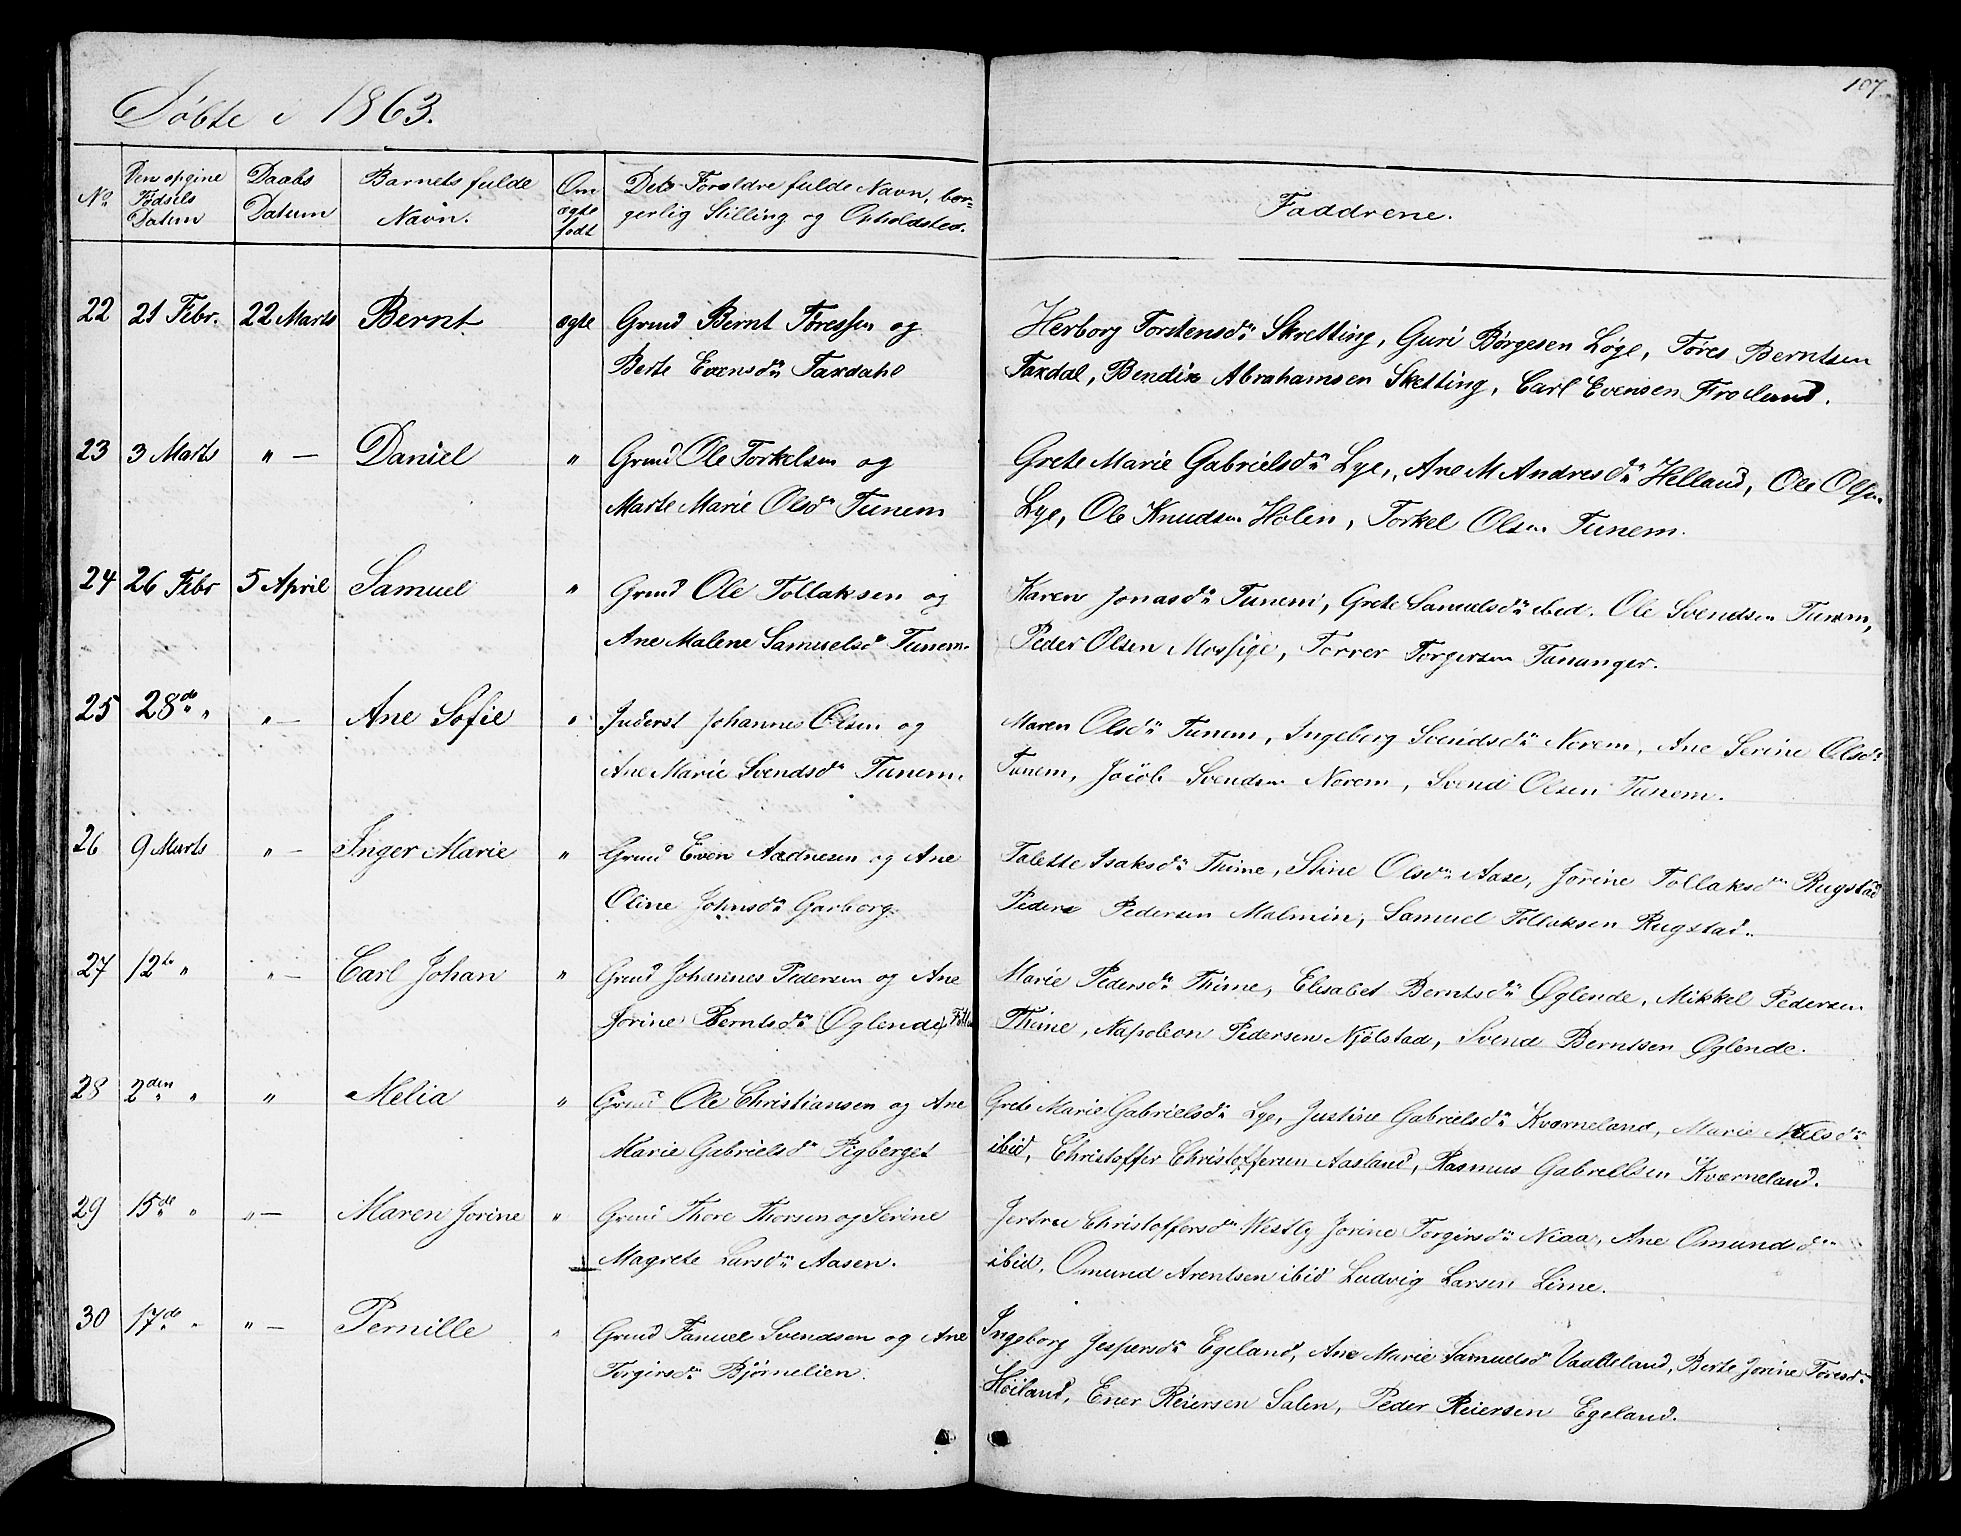 107.
Døbte i 1863.
No
Den opgine Fødsels Datum
Daabs Datum
Barnets fulde Navn.
Om ægte født
Dets Foraldre fulde Navn, bor-
gerlig Stilling og Opholdsted.
Faddrene.
22 21 Febr. 22 Marts Bernt ægte Grmd Bernt Tøressen og
Berte Evensdr Taxdahl
Herborg Torstensdr Skretting, Guri Børgesen Løge, Tøres Berntsen
Taxdal, Bendix Abrahamsen Sketting, Carl Evensen Froeland.
23 3 Marts " — Daniel " Grmd Ole Torkelsen og
Marte Marie Olsdr Tunem
Grete Marie Gabrielsdr Lye, Ane M Andresdr Helland, Ole Olsen
Lye, Ole Knudsen Holen, Torkel Olsen Tunem.
24 26 Febr 5 April Samuel " Grmd Ole Tollaksen og
Ane Malene Samuelsdr Tunem.
Karen Jonasdr Tunem, Grete Samuelsdr ibid. Ole Svendsen Tunem,
Peder Olsen Mossige, Torrer Torgersen Tananger.
25 28de " " — Ane Sofie " Inderst Johannes Olsen og
Ane Marie Svendsdr Tunem.
Maren Olsdr Tunem, Ingeborg Svendsdr Norem, Ane Serine Olsdr
Tunem, Jacob Svendsen Norem, Svend Olsen Tunem.
26 9 Marts " — Inger Marie " Grmd Even Aadnesen og Ane
Oline Johnsdr Garborg.
Talette Isaksdr Thime, Stine Olsdr Aase, Jorine Tollaksdr Rugstad
Peder Pedersen Malmin, Samuel Tollaksen Rugstad.
27 12te " " — Carl Johan " Grmd Johannes Pedersen og Ane
Jorine Berntsdr Øglende,
Marie Pedersdr Thime, Elisabet Berntsdr Øglende, Mikkel Pedersen
Thime, Napoleon Pedersen Njølstad, Svend Berntsen Øglende.
28 2den " " Melia " Grmd Ole Christiansen og Ane
Marie Gabrielsdr Rigberget
Grete Marie Gabrielsdr Lye, Justine Gabrielsdr Kværneland, Marie Nilsdr
ibid, Christoffer Christoffersen Aasland, Rasmus Gabrielsen Kværneland.
29 15de " " — Maren Jorine " Grmd Thore Thorsen og Serine
Magrete Larsdr Aasen.
Jertru Christoffersdr Westly Jorine Torgirsdr Niaa, Ane Omundsdr
ibid, Omund Arentsen ibid Ludvig Larsen Lime.
30 17de " " — Pernille " Grmd Samuel Svendsen og Ane
Torgirsdr Bjørnelien.
Ingeborg Jespersdr Egeland, Ane Marie Samuelsdr Vaalteland, Berte Jorine Toresdr
Høiland, Ener Reiersen Salen, Peder Reiersen Egeland.